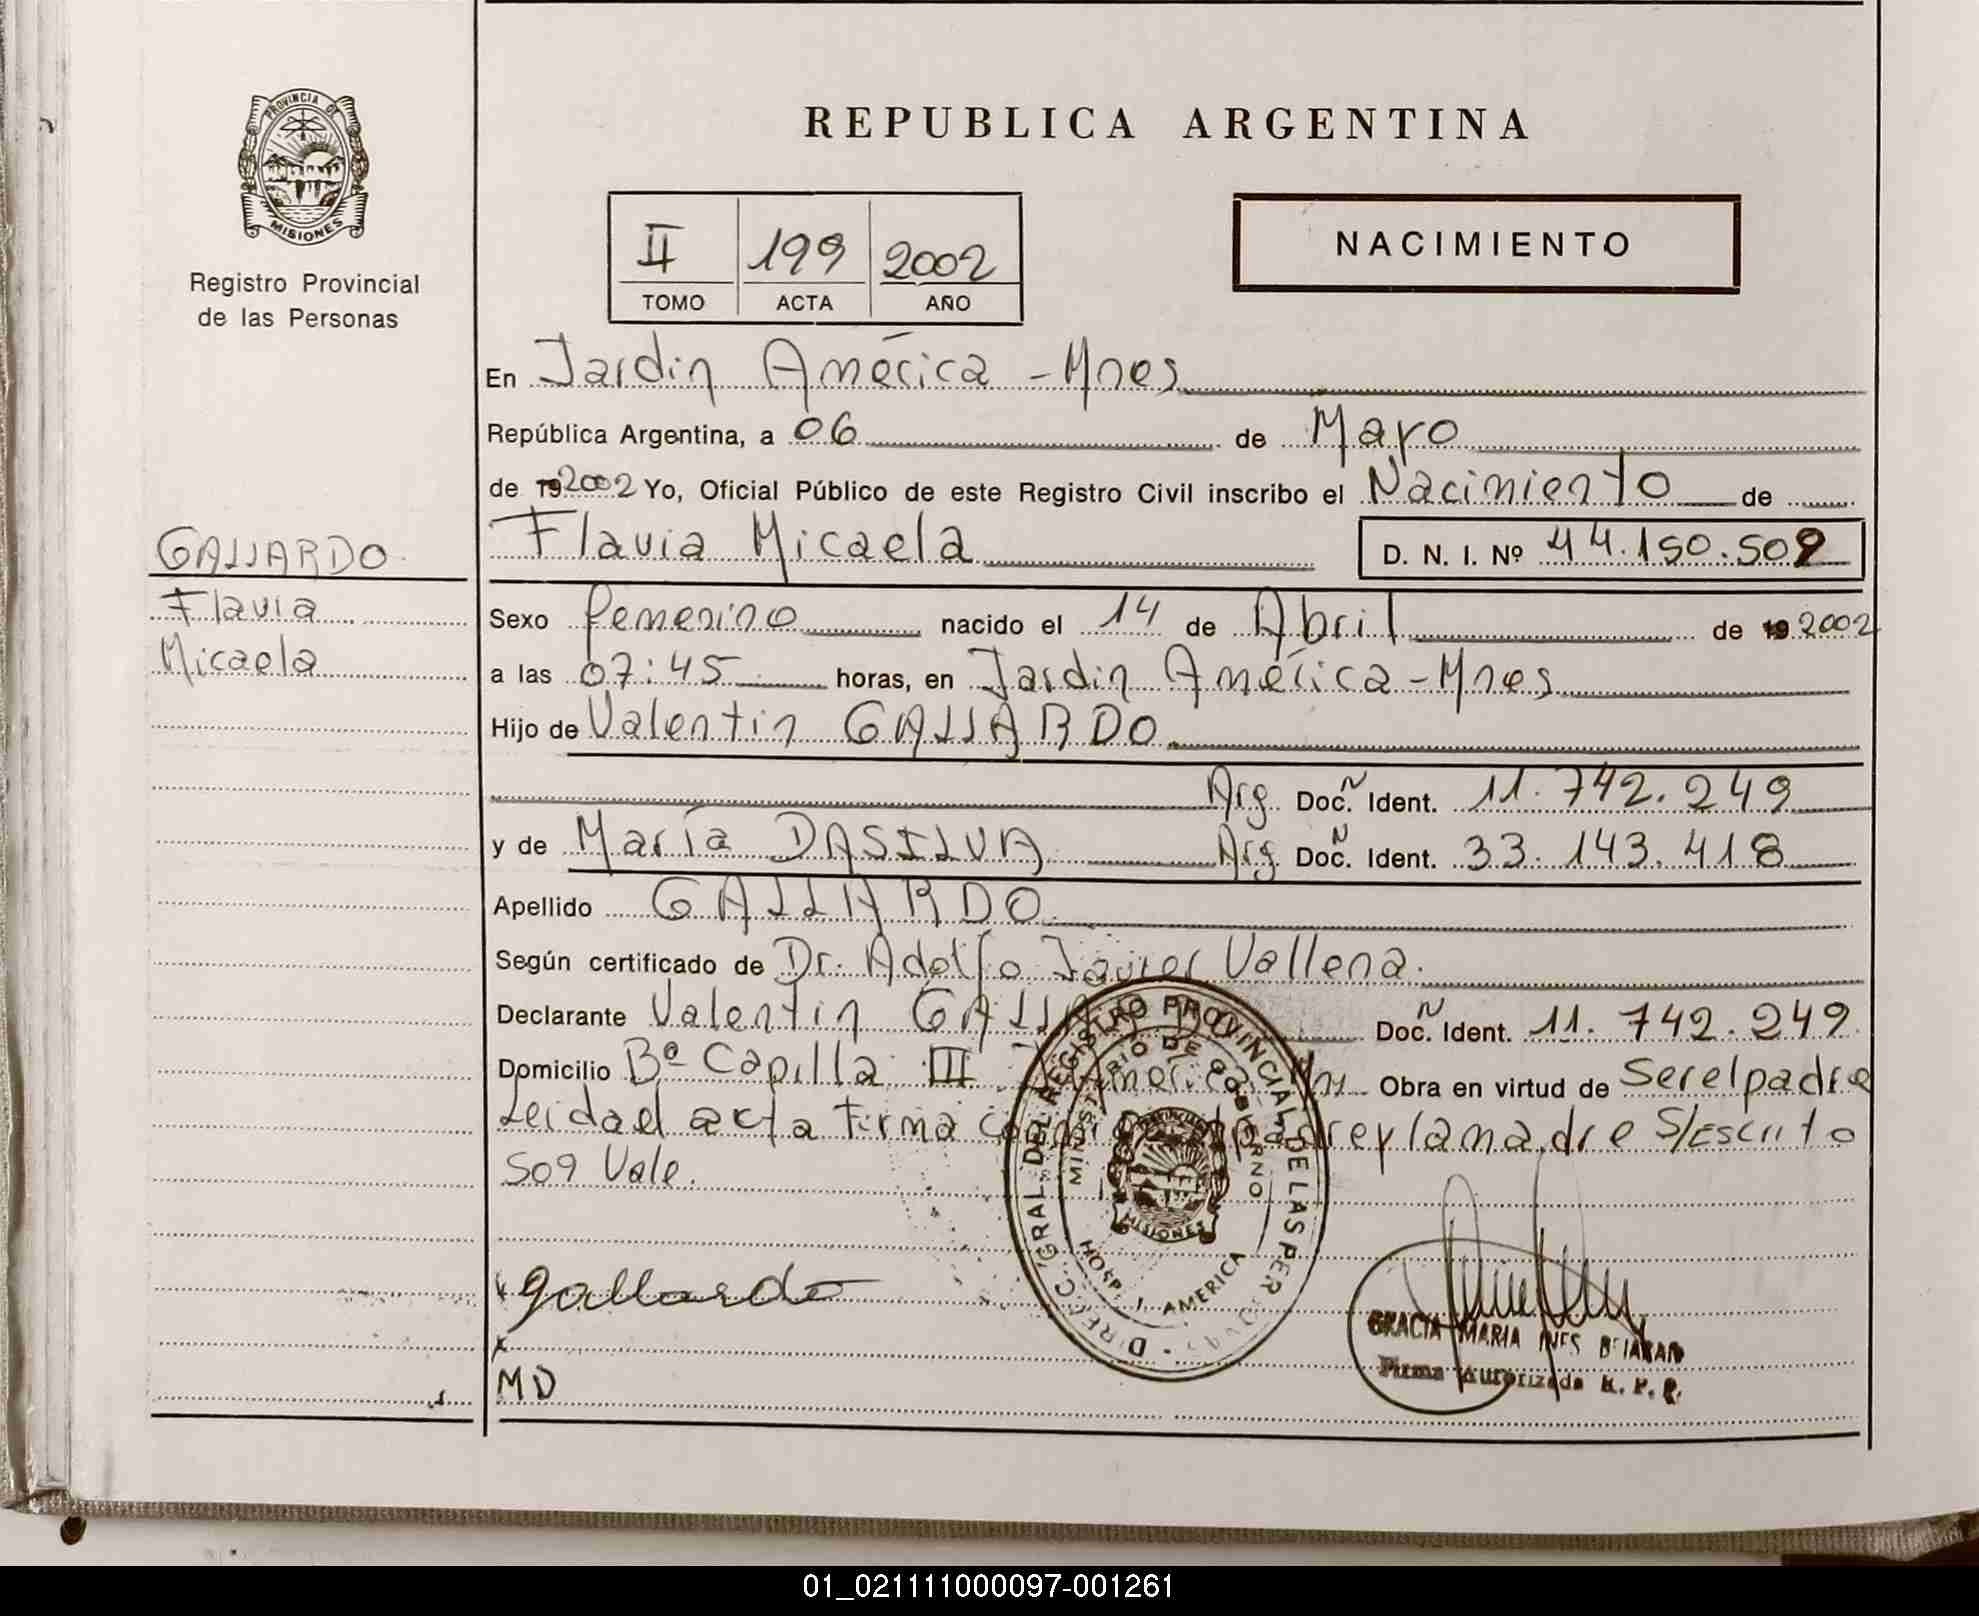 PROVINCIA DE
MISIONES
Registro Provincial
de las Personas
REPUBLICA ARGENTINA
II 199 2002
TOMO ACTA AÑO
NACIMIENTO
En Jardin América - Mnes
República Argentina, a 06 de Mayo
de 192002 Yo, Oficial Público de este Registro Civil inscribo el Nacimiento de
Flavia Micaela
D. N. I. Nº 44.150.509
GALLARDO
Flavia
Micaela
Sexo femenino nacido el 14 de Abril de 19 2002
a las 07:45 horas, en Jardin América - Mnes
Hijo de Valentin GALLARDO
Arg. Doc. Ident. 11.742.249
y de María DASILVA Arg. Doc. Ident. 33.143.418
Apellido GALLARDO
Según certificado de Dr. Adolfo Javier Vallena.
Declarante Valentin Doc. Ident. 11.742.249
Domicilio Bº Capilla III América Mns Obra en virtud de Ser el padre
Leida el acta firma el padre y la madre S/Escrito
509 Vale.
DIREC. GRAL. DEL REGISTRO PROVINCIAL DE LAS PERSONAS
MINISTERIO DE GOBIERNO
MISIONES
HOSP. J. AMERICA
x gallardo
x
MD
GRACIA MARIA INES
Firma Autorizada R. P. P.
01_021111000097-001261